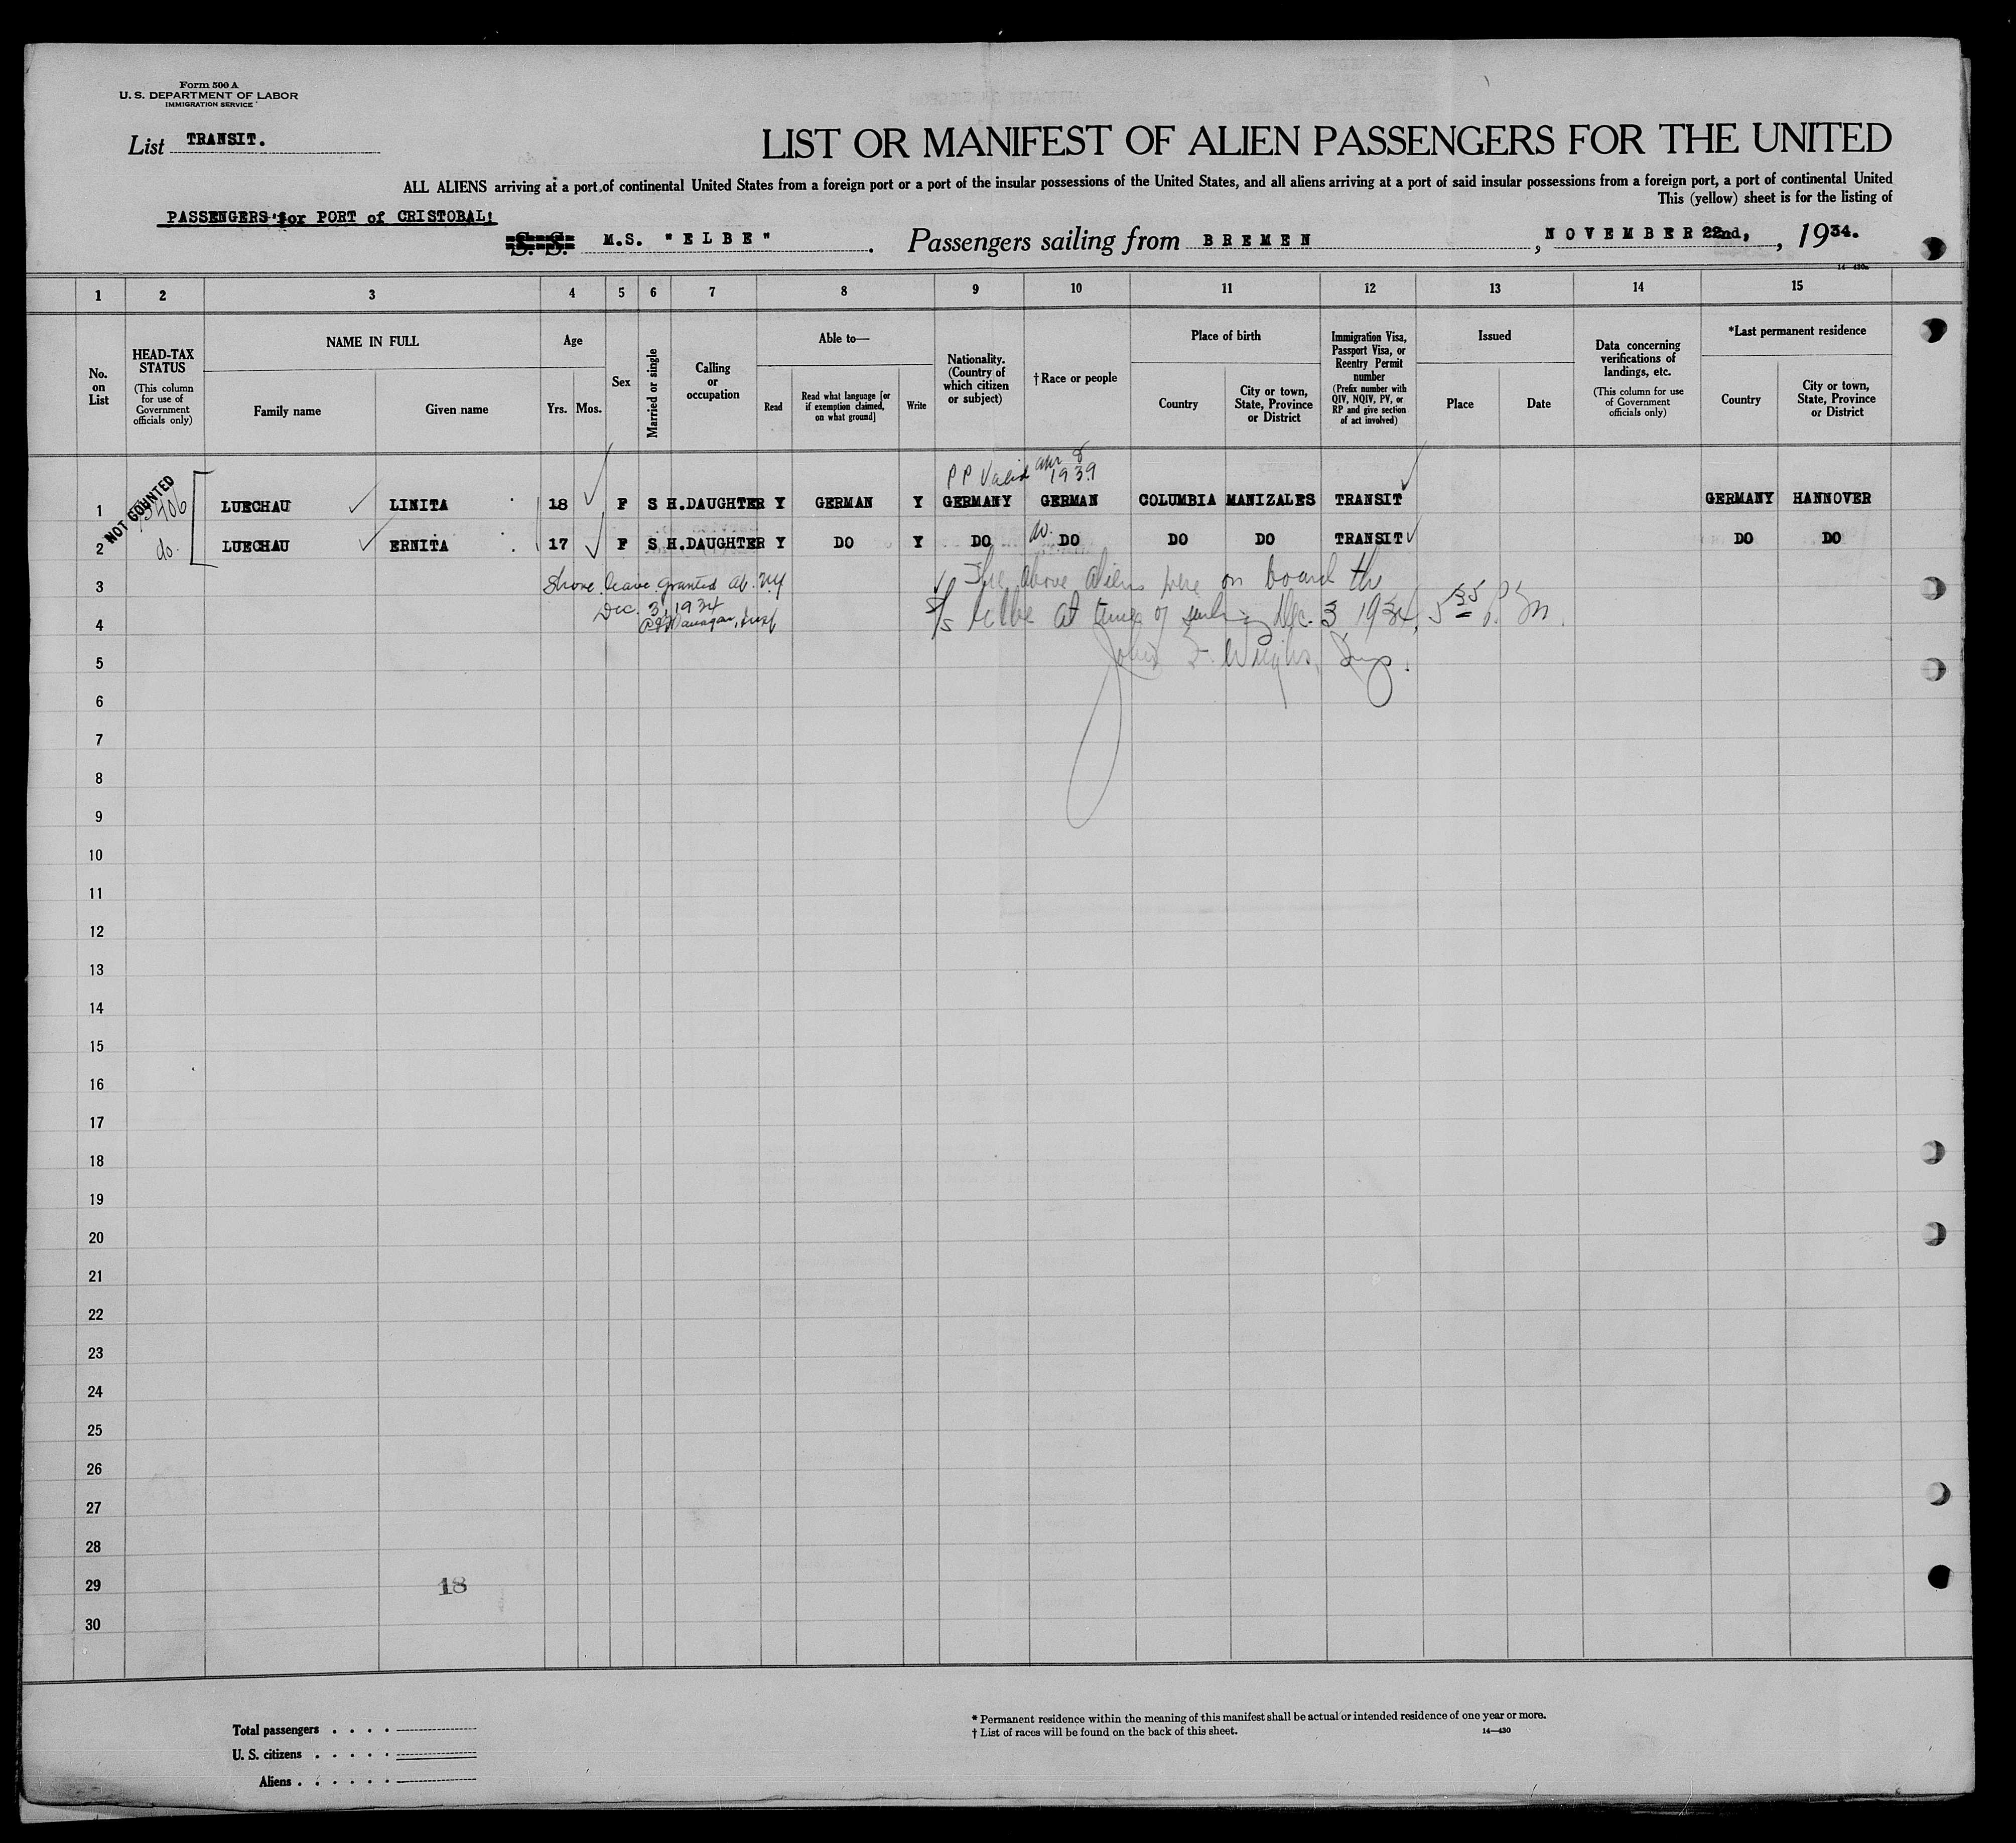 Form 500 A
U. S. DEPARTMENT OF LABOR
IMMIGRATION SERVICE
List TRANSIT.
LIST OR MANIFEST OF ALIEN PASSENGERS FOR THE UNITED
ALL ALIENS arriving at a port of continental United States from a foreign port or a port of the insular possessions of the United States, and all aliens arriving at a port of said insular possessions from a foreign port, a port of continental United
This (yellow) sheet is for the listing of
PASSENGERS for PORT of CRISTOBAL!
S. S. M.S. "ELBE" . Passengers sailing from BREMEN , NOVEMBER 22nd, , 1934.
14-430a
1 2 3 4 5 6 7 8 9 10 11 12 13 14 15
No. on List
HEAD-TAX STATUS
(This column for use of Government officials only)
NAME IN FULL
Family name
Given name
Age
Yrs. Mos.
Sex
Married or single
Calling or occupation
Able to—
Read
Read what language [or if exemption claimed, on what ground]
Write
Nationality. (Country of which citizen or subject)
† Race or people
Place of birth
Country
City or town, State, Province or District
Immigration Visa, Passport Visa, or Reentry Permit number
(Prefix number with QIV, NQIV, PV, or RP and give section of act involved)
Issued
Place
Date
Data concerning verifications of landings, etc.
(This column for use of Government officials only)
*Last permanent residence
Country
City or town, State, Province or District
NOT COUNTED
PP Valid Apr 8
1939
1 LUECHAU LINITA 18 F S H.DAUGHTER Y GERMAN Y GERMANY GERMAN COLUMBIA MANIZALES TRANSIT GERMANY HANNOVER
2 do. LUECHAU ERNITA 17 F S H.DAUGHTER Y DO Y DO do. DO DO DO TRANSIT DO DO
3 Shore leave granted at N.Y The above aliens were on board the
Dec. 3, 1934
4 S/S Elbe at time of sailing Dec. 3 1934, 5 35 P. M.
5 John F. Insp.
6
7
8
9
10
11
12
13
14
15
16
17
18
19
20
21
22
23
24
25
26
27
28
29 18
30
Total passengers . . . .
U. S. citizens . . . . .
Aliens . . . . . .
* Permanent residence within the meaning of this manifest shall be actual or intended residence of one year or more.
† List of races will be found on the back of this sheet.
14—430